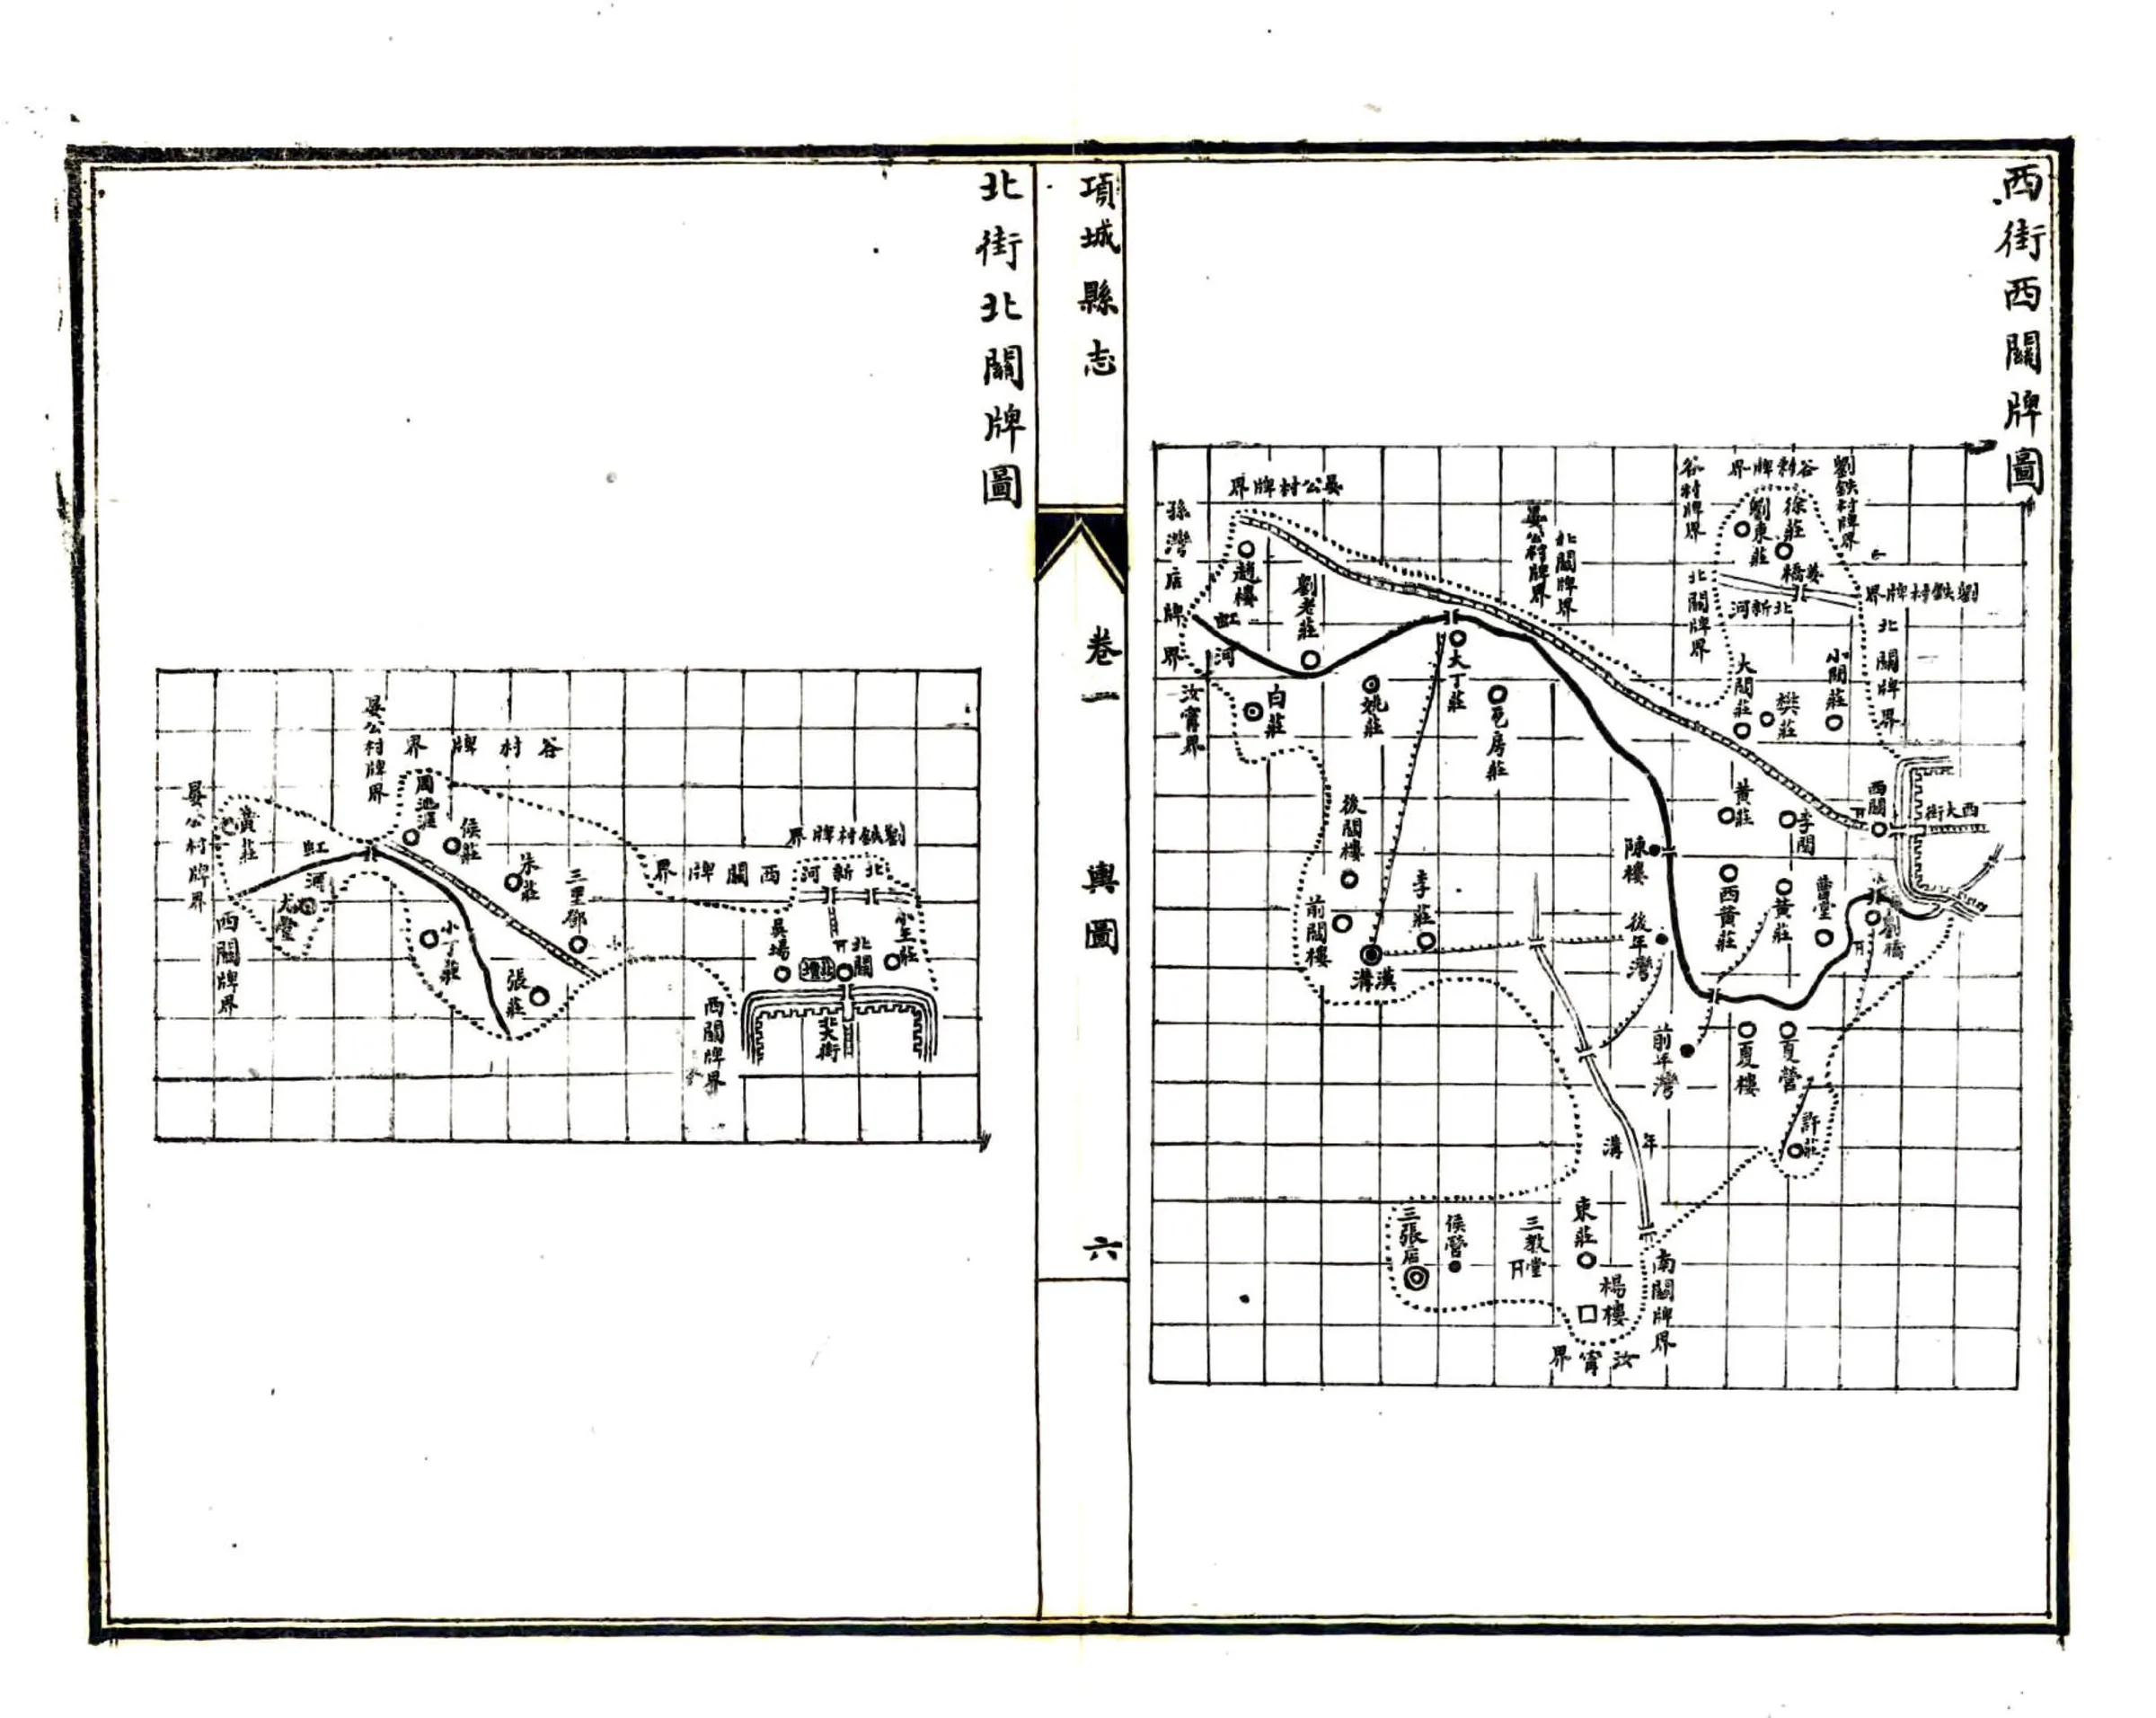 西街西關牌圖
劉鉄村牌界
谷村牌界
谷村牌界
徐莊
劉東莊
姜橋
北新河
劉鉄村牌界
北關牌界
北關牌界
小閻莊
樊莊
大閻莊
西關
西大街
李閻
黃莊
北關牌界
晏公村牌界
晏公村牌界
孫灣店牌界
趙樓
劉老莊
虹河
汝甯界
白莊
姚莊
大丁莊
後閻樓
前閻樓
李莊
漢溝
陳樓
後年灣
前年灣
西黃莊
黃莊
曹堂
夏樓
夏營
許莊
年溝
東莊
三教堂
侯營
三張店
楊樓
南關牌界
汝甯界
項城縣志
卷一
輿圖
六
北街北關牌圖
劉鉄村牌界
北新河
西關牌界
小王莊
北關
吳場
北大街
西關牌界
谷村牌界
晏公村牌界
侯莊
朱莊
小丁莊
張莊
虹河
黃莊
晏公村牌界
西關牌界